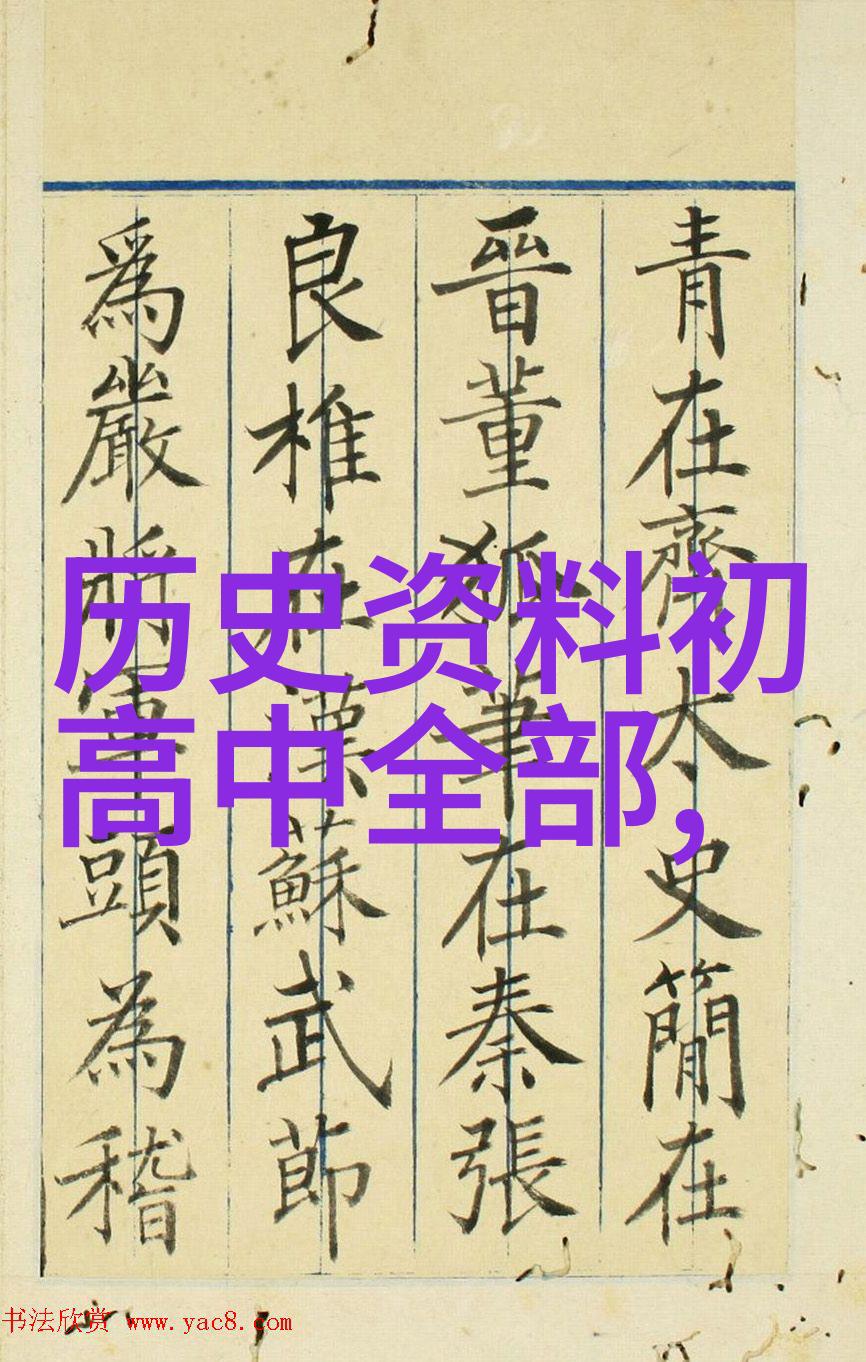 青在齊太史簡在
晉董狐筆在秦張
良椎在漢蘇武節
為嚴將軍頭為嵇
历史资料初
高中全部,
书法欣赏 www.yac8.com